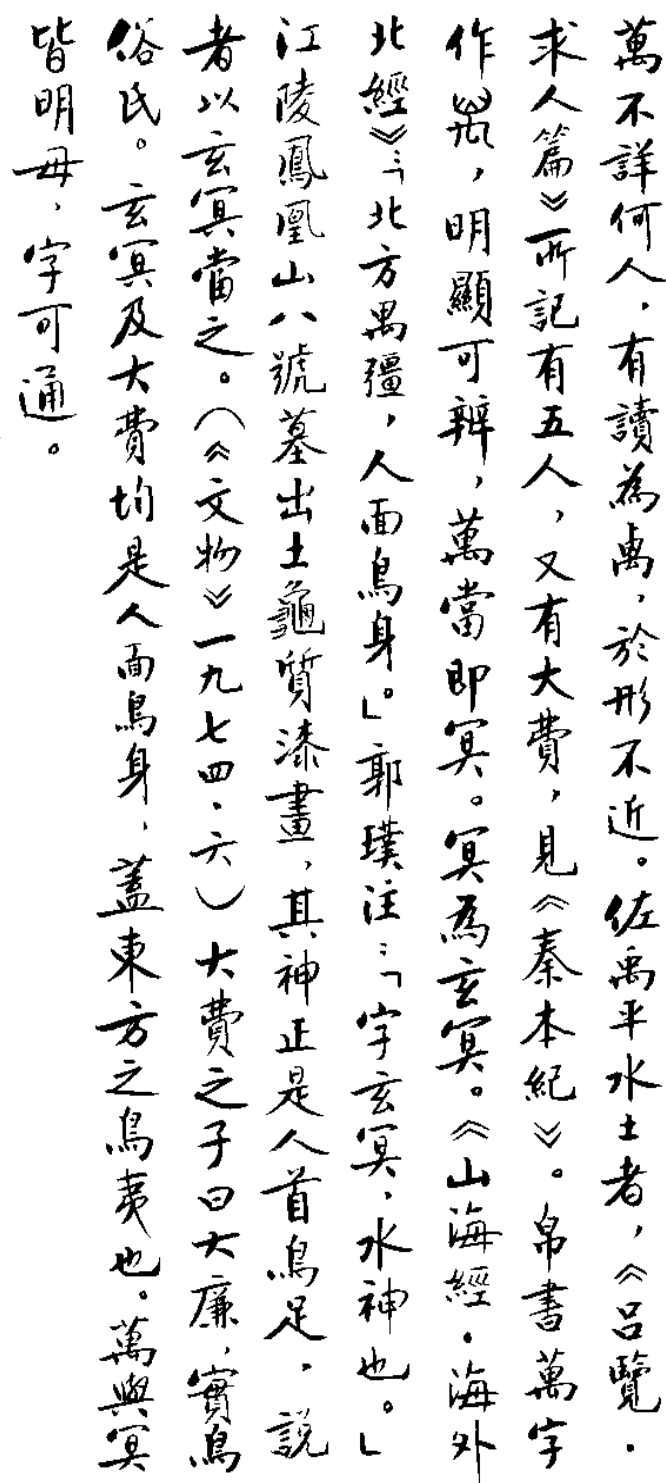 萬不詳何人，有讀為禹，於形不近。佐禹平水土者，《呂覽．
求人篇》所記有五人，又有大費，見《秦本紀》。帛書萬字
作，明顯可辨，萬當即冥。冥為玄冥。《山海經．海外
北經》：「北方禺彊，人面鳥身。」郭璞注：「字玄冥，水神也。」
江陵鳳凰山八號墓出土龜質漆畫，其神正是人首鳥足，說
者以玄冥當之。（《文物》一九七四．六）大費之子曰大廉，實鳥
俗氏。玄冥及大費均是人面鳥身，蓋東方之鳥夷也。萬與冥
皆明母，字可通。